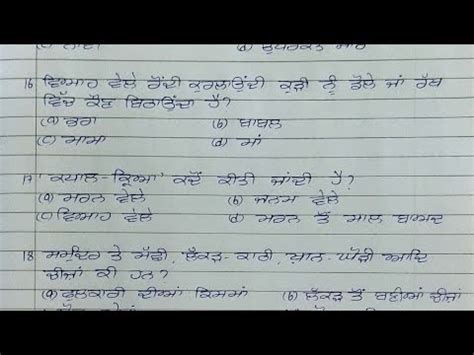 16 ਵਿਆਹ ਵੇਲੇ ਰੋਂਦੀ ਕੁਰਲਾਉਂਦੀ ਕੁੜੀ ਨੂੰ ਡੋਲੇ ਜਾਂ ਰੱਥ
ਵਿੱਚ ਕੌਣ ਬਿਠਾਉਂਦਾ ਹੈ?
(a) ਭਰਾ (b) ਬਾਬਲ
(c) ਮਾਮਾ (d) ਮਾਂ
17 'ਕਪਾਲ-ਕ੍ਰਿਆ' ਕਦੋਂ ਕੀਤੀ ਜਾਂਦੀ ਹੈ?
(a) ਮਰਨ ਵੇਲੇ (b) ਜਨਮ ਵੇਲੇ
(c) ਵਿਆਹ ਵੇਲੇ (d) ਮਰਨ ਤੋਂ ਸਾਲ ਬਾਅਦ
18 ਸਮੁੰਦਰ ਤੇ ਮੱਛੀ, ਲੱਕੜ-ਕਾਠੀ, ਖ਼ਾਨ-ਘੋੜੀ ਆਦਿ
ਚੀਜ਼ਾਂ ਕੀ ਹਨ?
(a) ਫੁਲਕਾਰੀ ਦੀਆਂ ਕਿਸਮਾਂ (b) ਲੱਕੜ ਤੋਂ ਬਣੀਆਂ ਚੀਜ਼ਾਂ